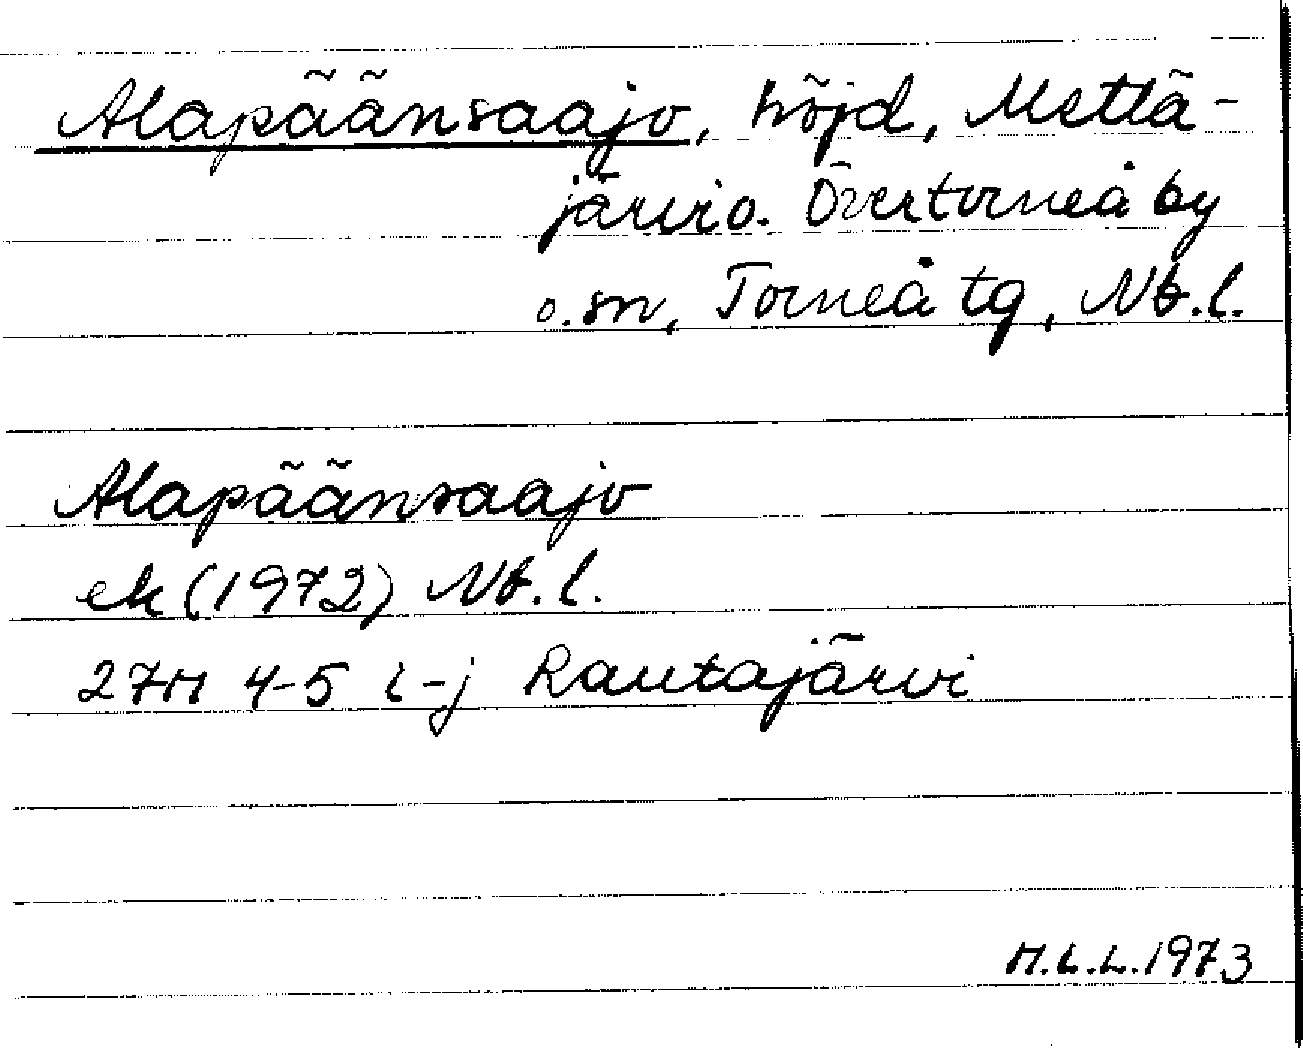 Alapäänsaajo, höjd, Mettä-
järvi o. Övertorneå by
o. sn, Torneå tg, Nb. l.
Alapäänsaajo
ek (1972) Nb. l.
27M 4-5 i-j Rautajärvi
M.L.L. 1973